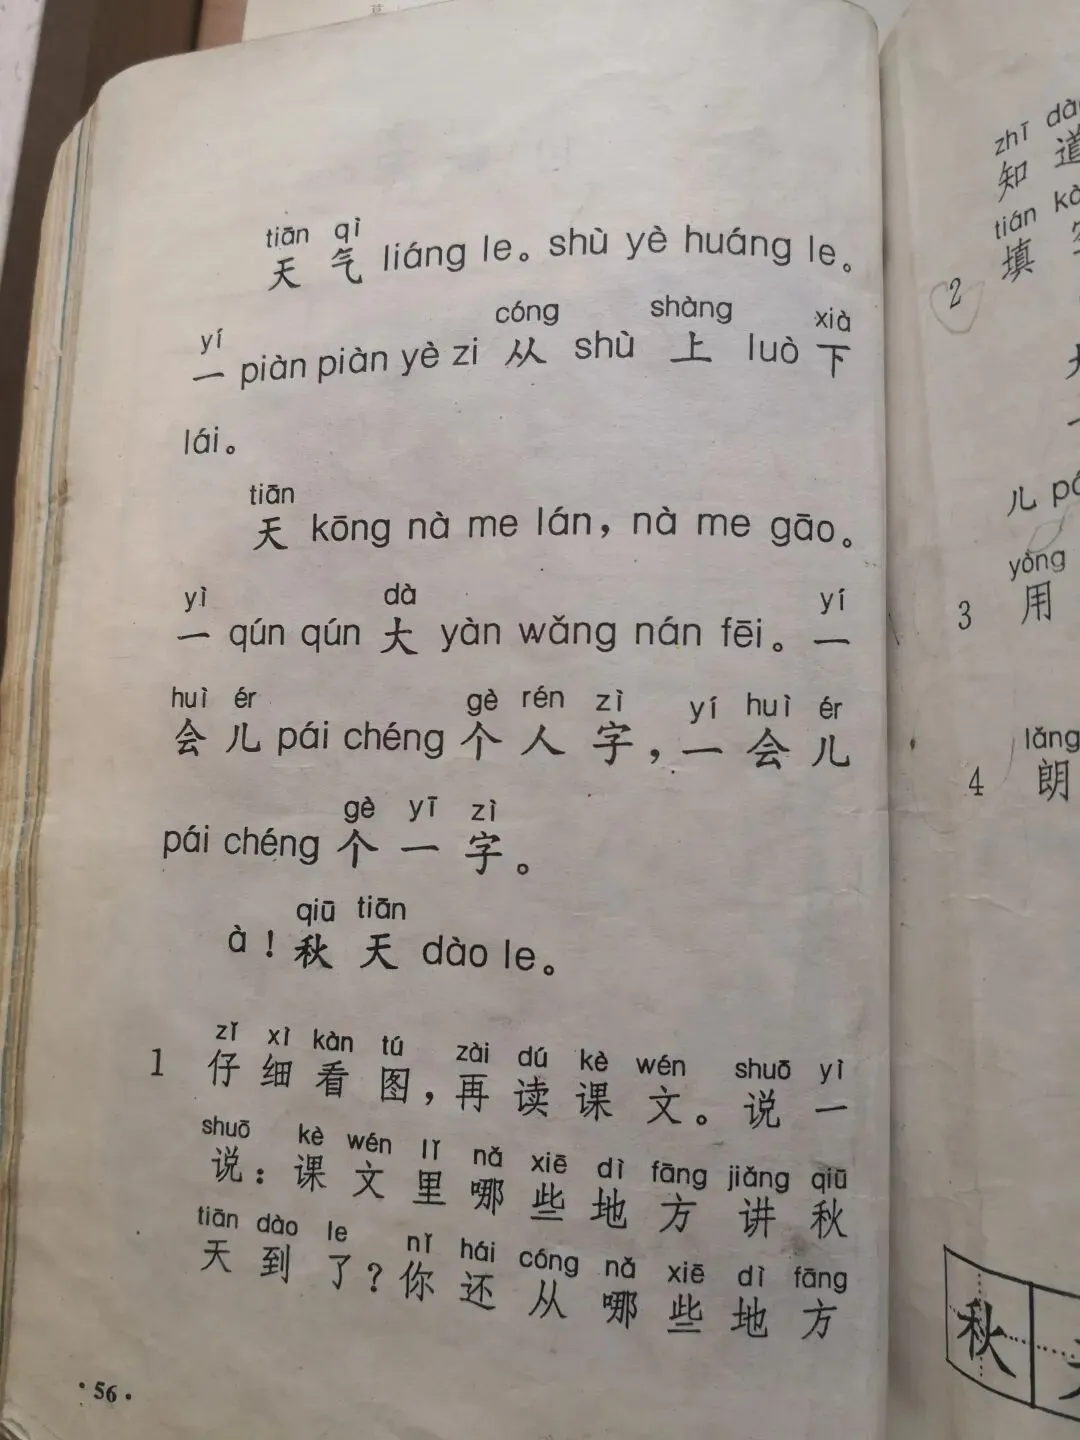 tiān qì
天 气 liáng le。shù yè huáng le。
yí cóng shàng xià
一 piàn piàn yè zi 从 shù 上 luò 下
lái。
tiān
天 kōng nà me lán，nà me gāo。
yì dà yí
一 qún qún 大 yàn wǎng nán fēi。一
huì ér gè rén zì yí huì ér
会 儿 pái chéng 个 人 字，一 会 儿
gè yī zì
pái chéng 个 一 字。
qiū tiān
à！秋 天 dào le。
zǐ xì kàn tú zài dú kè wén shuō yì
1 仔 细 看 图，再 读 课 文。说 一
shuō kè wén lǐ nǎ xiē dì fāng jiǎng qiū
说：课 文 里 哪 些 地 方 讲 秋
tiān dào le nǐ hái cóng nǎ xiē dì fāng
天 到 了？你 还 从 哪 些 地 方
·56·
zhī dà
知 道
tián kò
2 填
儿 pá
yòng
3 用
lǎng
4 朗
秋